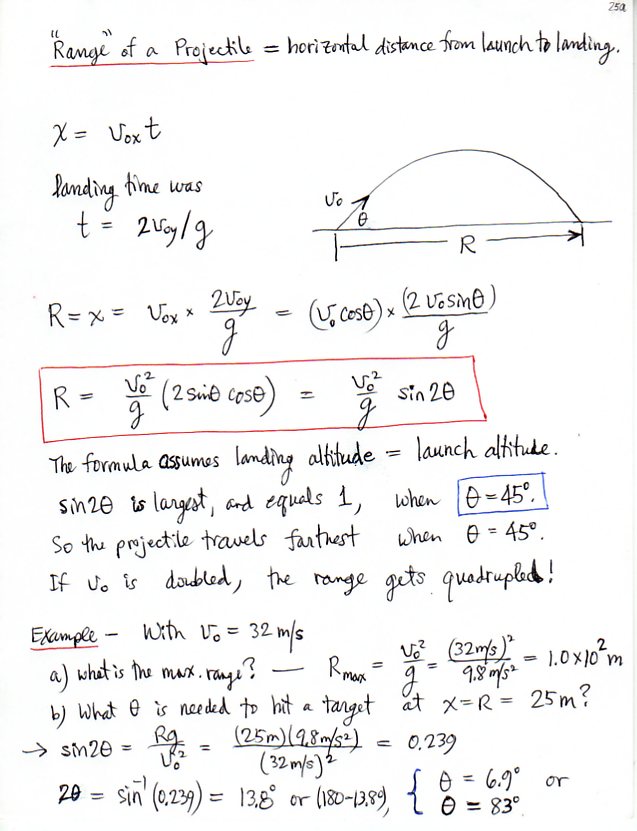 25a
"Range" of a Projectile = horizontal distance from launch to landing.
x = v₀ₓt
landing time was
t = 2v₀y/g
v₀
θ
R
R = x = v₀ₓ × 2v₀y/g = (v₀ cosθ) × (2 v₀ sinθ)/g
R = v₀²/g (2 sinθ cosθ) = v₀²/g sin 2θ
The formula assumes landing altitude = launch altitude.
sin2θ is largest, and equals 1, when θ = 45°.
So the projectile travels farthest when θ = 45°.
If v₀ is doubled, the range gets quadrupled!
Example – With v₀ = 32 m/s
a) what is the max. range? — Rmax = v₀²/g = (32m/s)²/9.8m/s² = 1.0×10² m
b) What θ is needed to hit a target at x = R = 25m?
→ sin2θ = Rg/v₀² = (25m)(9.8m/s²)/(32m/s)² = 0.239
2θ = sin⁻¹(0.239) = 13.8° or (180-13.8°), { θ = 6.9° or
θ = 83°